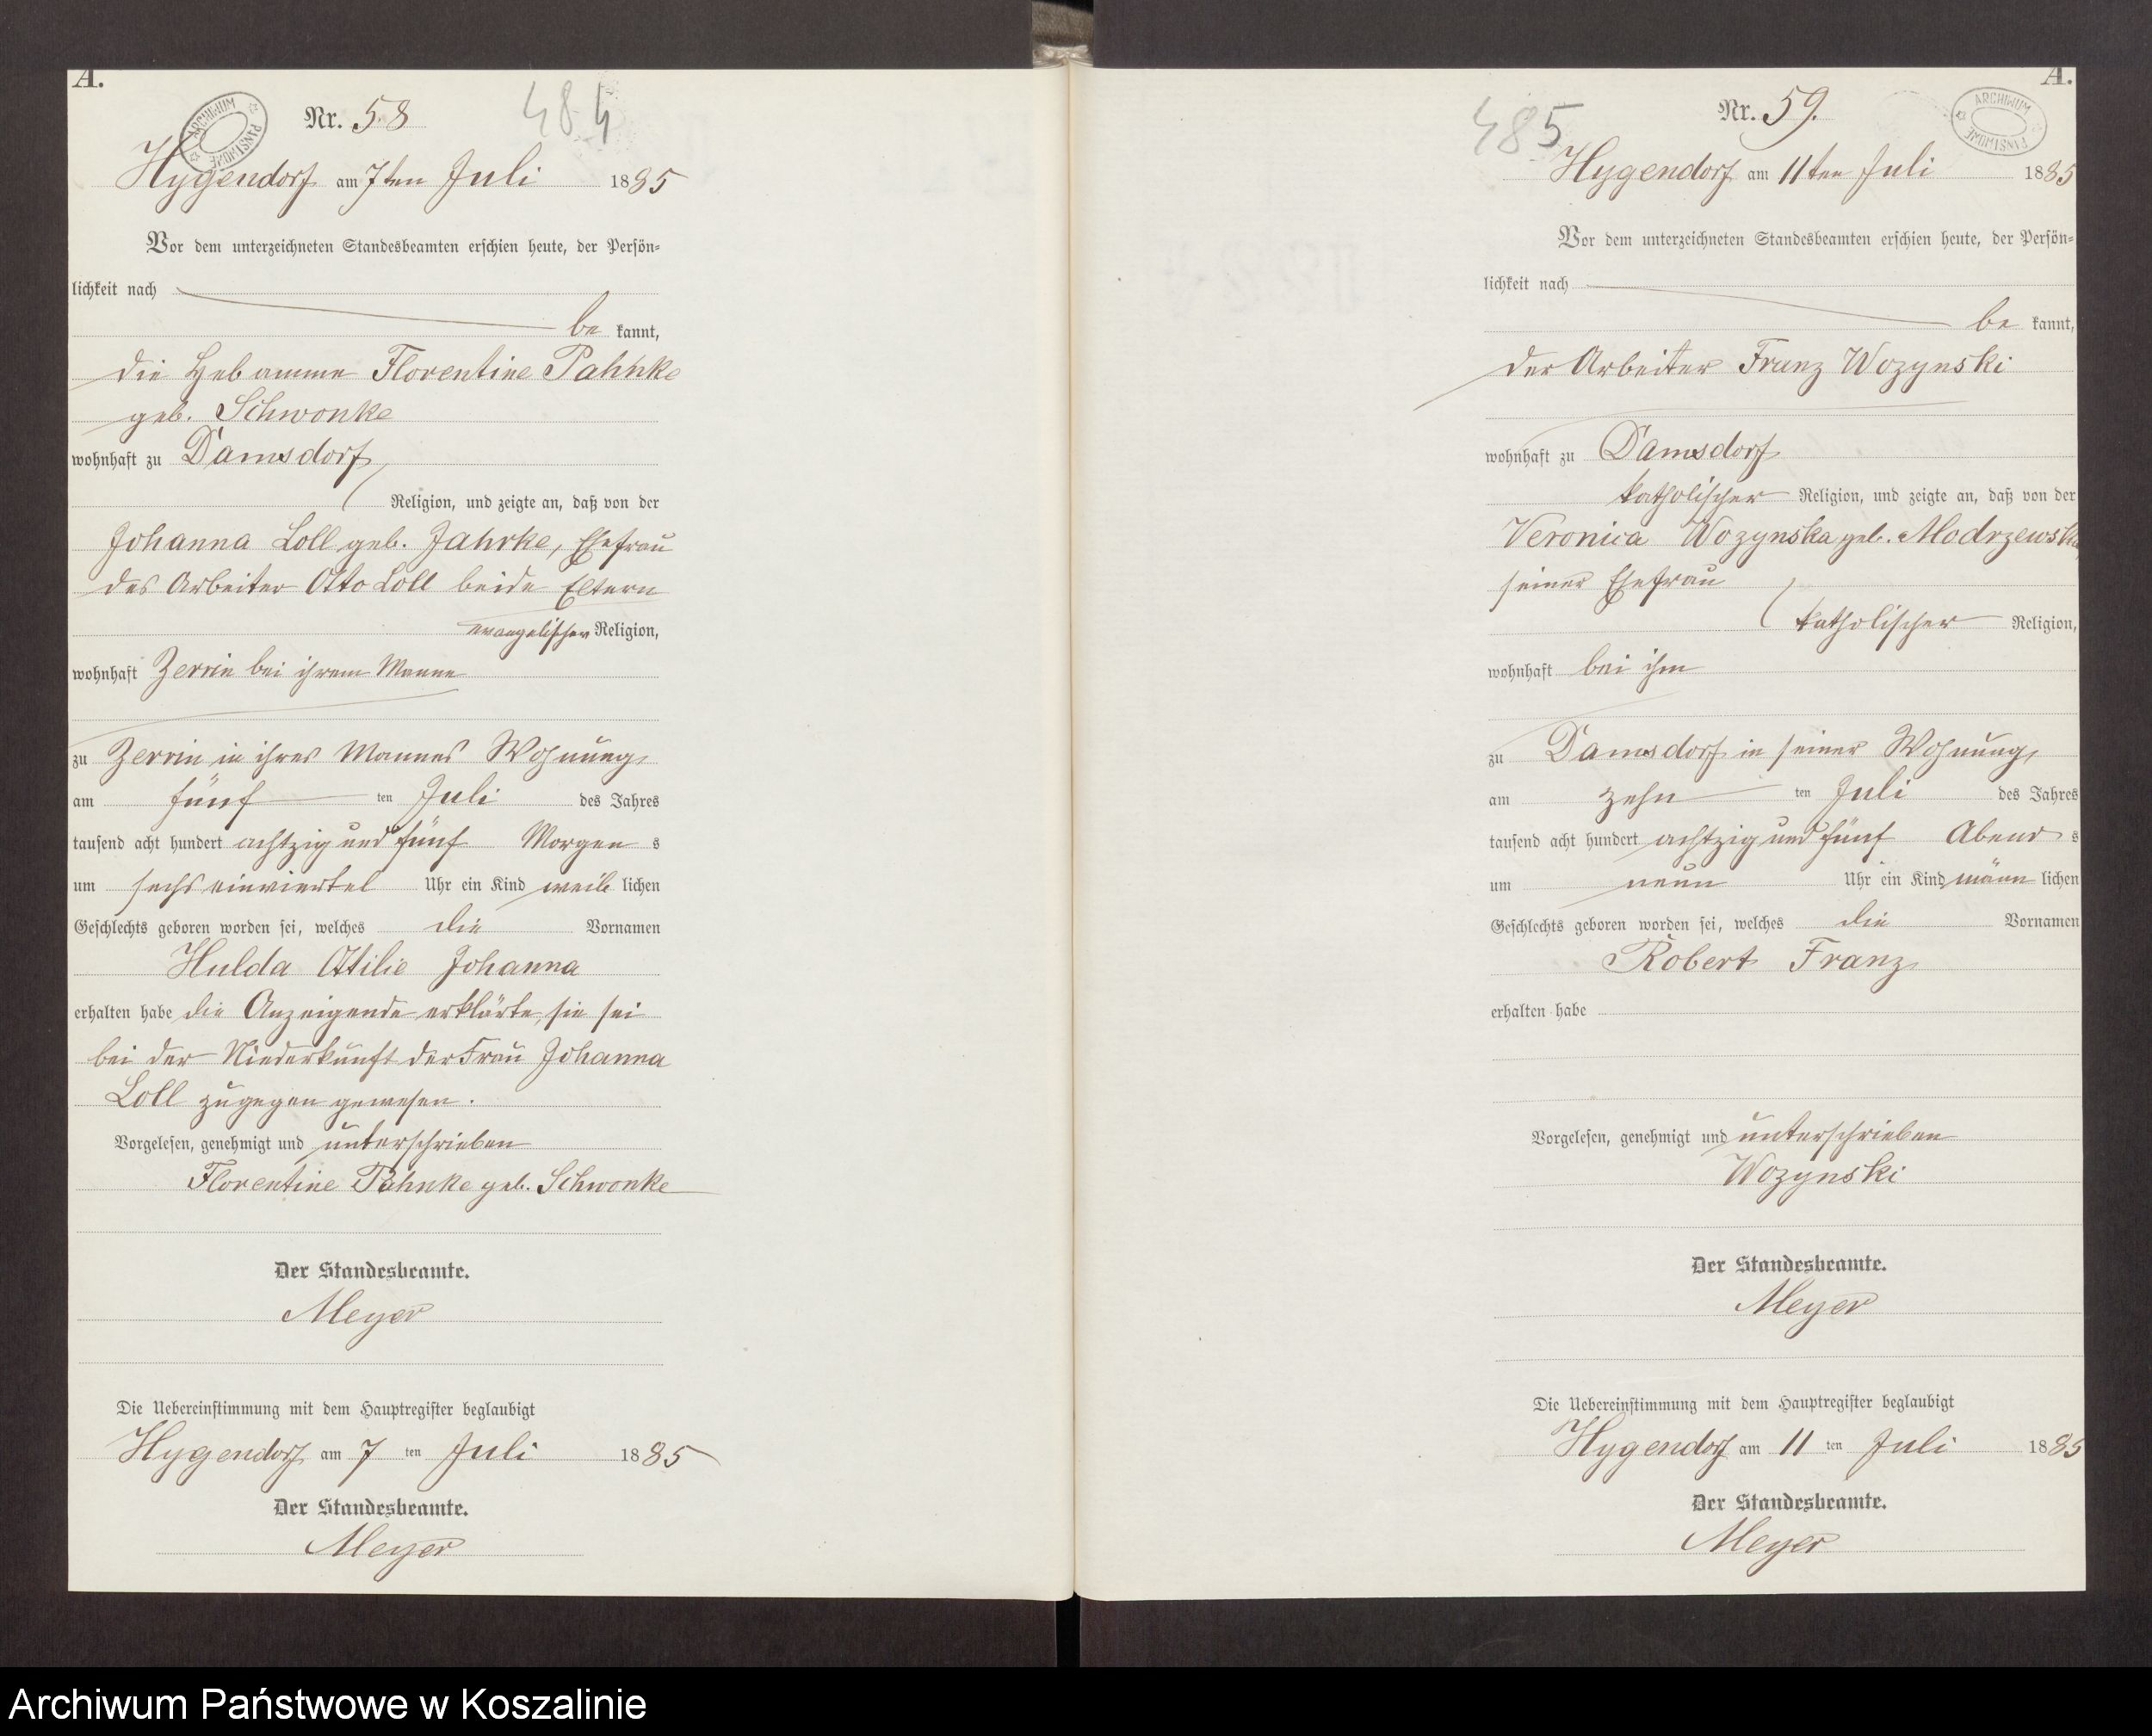 A.
ARCHIWUM PAŃSTWOWE
Nr. 58
484
Hygendorf am 7ten Juli 1885
Vor dem unterzeichneten Standesbeamten erschien heute, der Persön-
lichkeit nach
be kannt,
die Hebamme Florentine Pahnke
geb. Schwonke
wohnhaft zu Damsdorf
Religion, und zeigte an, daß von der
Johanna Loll geb. Jahrke, Ehefrau
des Arbeiter Otto Loll beide Eltern
evangelischer Religion,
wohnhaft Zerrin bei ihrem Manne
zu Zerrin in ihres Mannes Wohnung,
am fünf ten Juli des Jahres
tausend acht hundert achtzig und fünf Morgen s
um sechs einviertel Uhr ein Kind weib lichen
Geschlechts geboren worden sei, welches die Vornamen
Hulda Ottilie Johanna
erhalten habe die Anzeigende erklärte, sie sei
bei der Niederkunft der Frau Johanna
Loll zugegen gewesen.
Vorgelesen, genehmigt und unterschrieben
Florentine Pahnke geb. Schwonke
Der Standesbeamte.
Meyer
Die Uebereinstimmung mit dem Hauptregister beglaubigt
Hygendorf am 7 ten Juli 1885
Der Standesbeamte.
Meyer
A.
ARCHIWUM PAŃSTWOWE
Nr. 59.
485
Hygendorf am 11ten Juli 1885
Vor dem unterzeichneten Standesbeamten erschien heute, der Persön-
lichkeit nach
be kannt,
der Arbeiter Franz Wozynski
wohnhaft zu Damsdorf
katholischer Religion, und zeigte an, daß von der
Veronica Wozynska geb. Modrzewska
seiner Ehefrau
katholischer Religion,
wohnhaft bei ihm
zu Damsdorf in seiner Wohnung,
am zehn ten Juli des Jahres
tausend acht hundert achtzig und fünf Abend s
um neun Uhr ein Kind männ lichen
Geschlechts geboren worden sei, welches die Vornamen
Robert Franz
erhalten habe
Vorgelesen, genehmigt und unterschrieben
Wozynski
Der Standesbeamte.
Meyer
Die Uebereinstimmung mit dem Hauptregister beglaubigt
Hygendorf am 11 ten Juli 1885
Der Standesbeamte.
Meyer
Archiwum Państwowe w Koszalinie